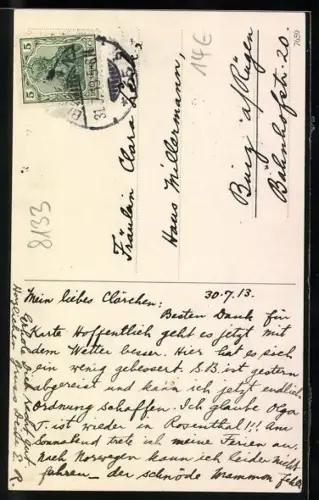 5
5
31.7.13.5-6
Fräulein Clara
Haus Millermann,
Burg a/Rügen
Bahnhofstr. 20.
14€
7659
8133
30.7.13.
Mein liebes Clärchen:
Besten Dank für
Karte Hoffentlich geht es jetzt mit
dem Wetter besser. Hier hat es sich
ein wenig gebessert. B.B. ist gestern
abgereist und kann ich jetzt endlich
Ordnung schaffen. Ich glaube Olga
T. ist wieder in Rosenthal!! Am
Sonnabend trete ich meine Ferien an.
nach Norwegen kann ich leider nicht
fahren – der schnöde Mammon fehlt